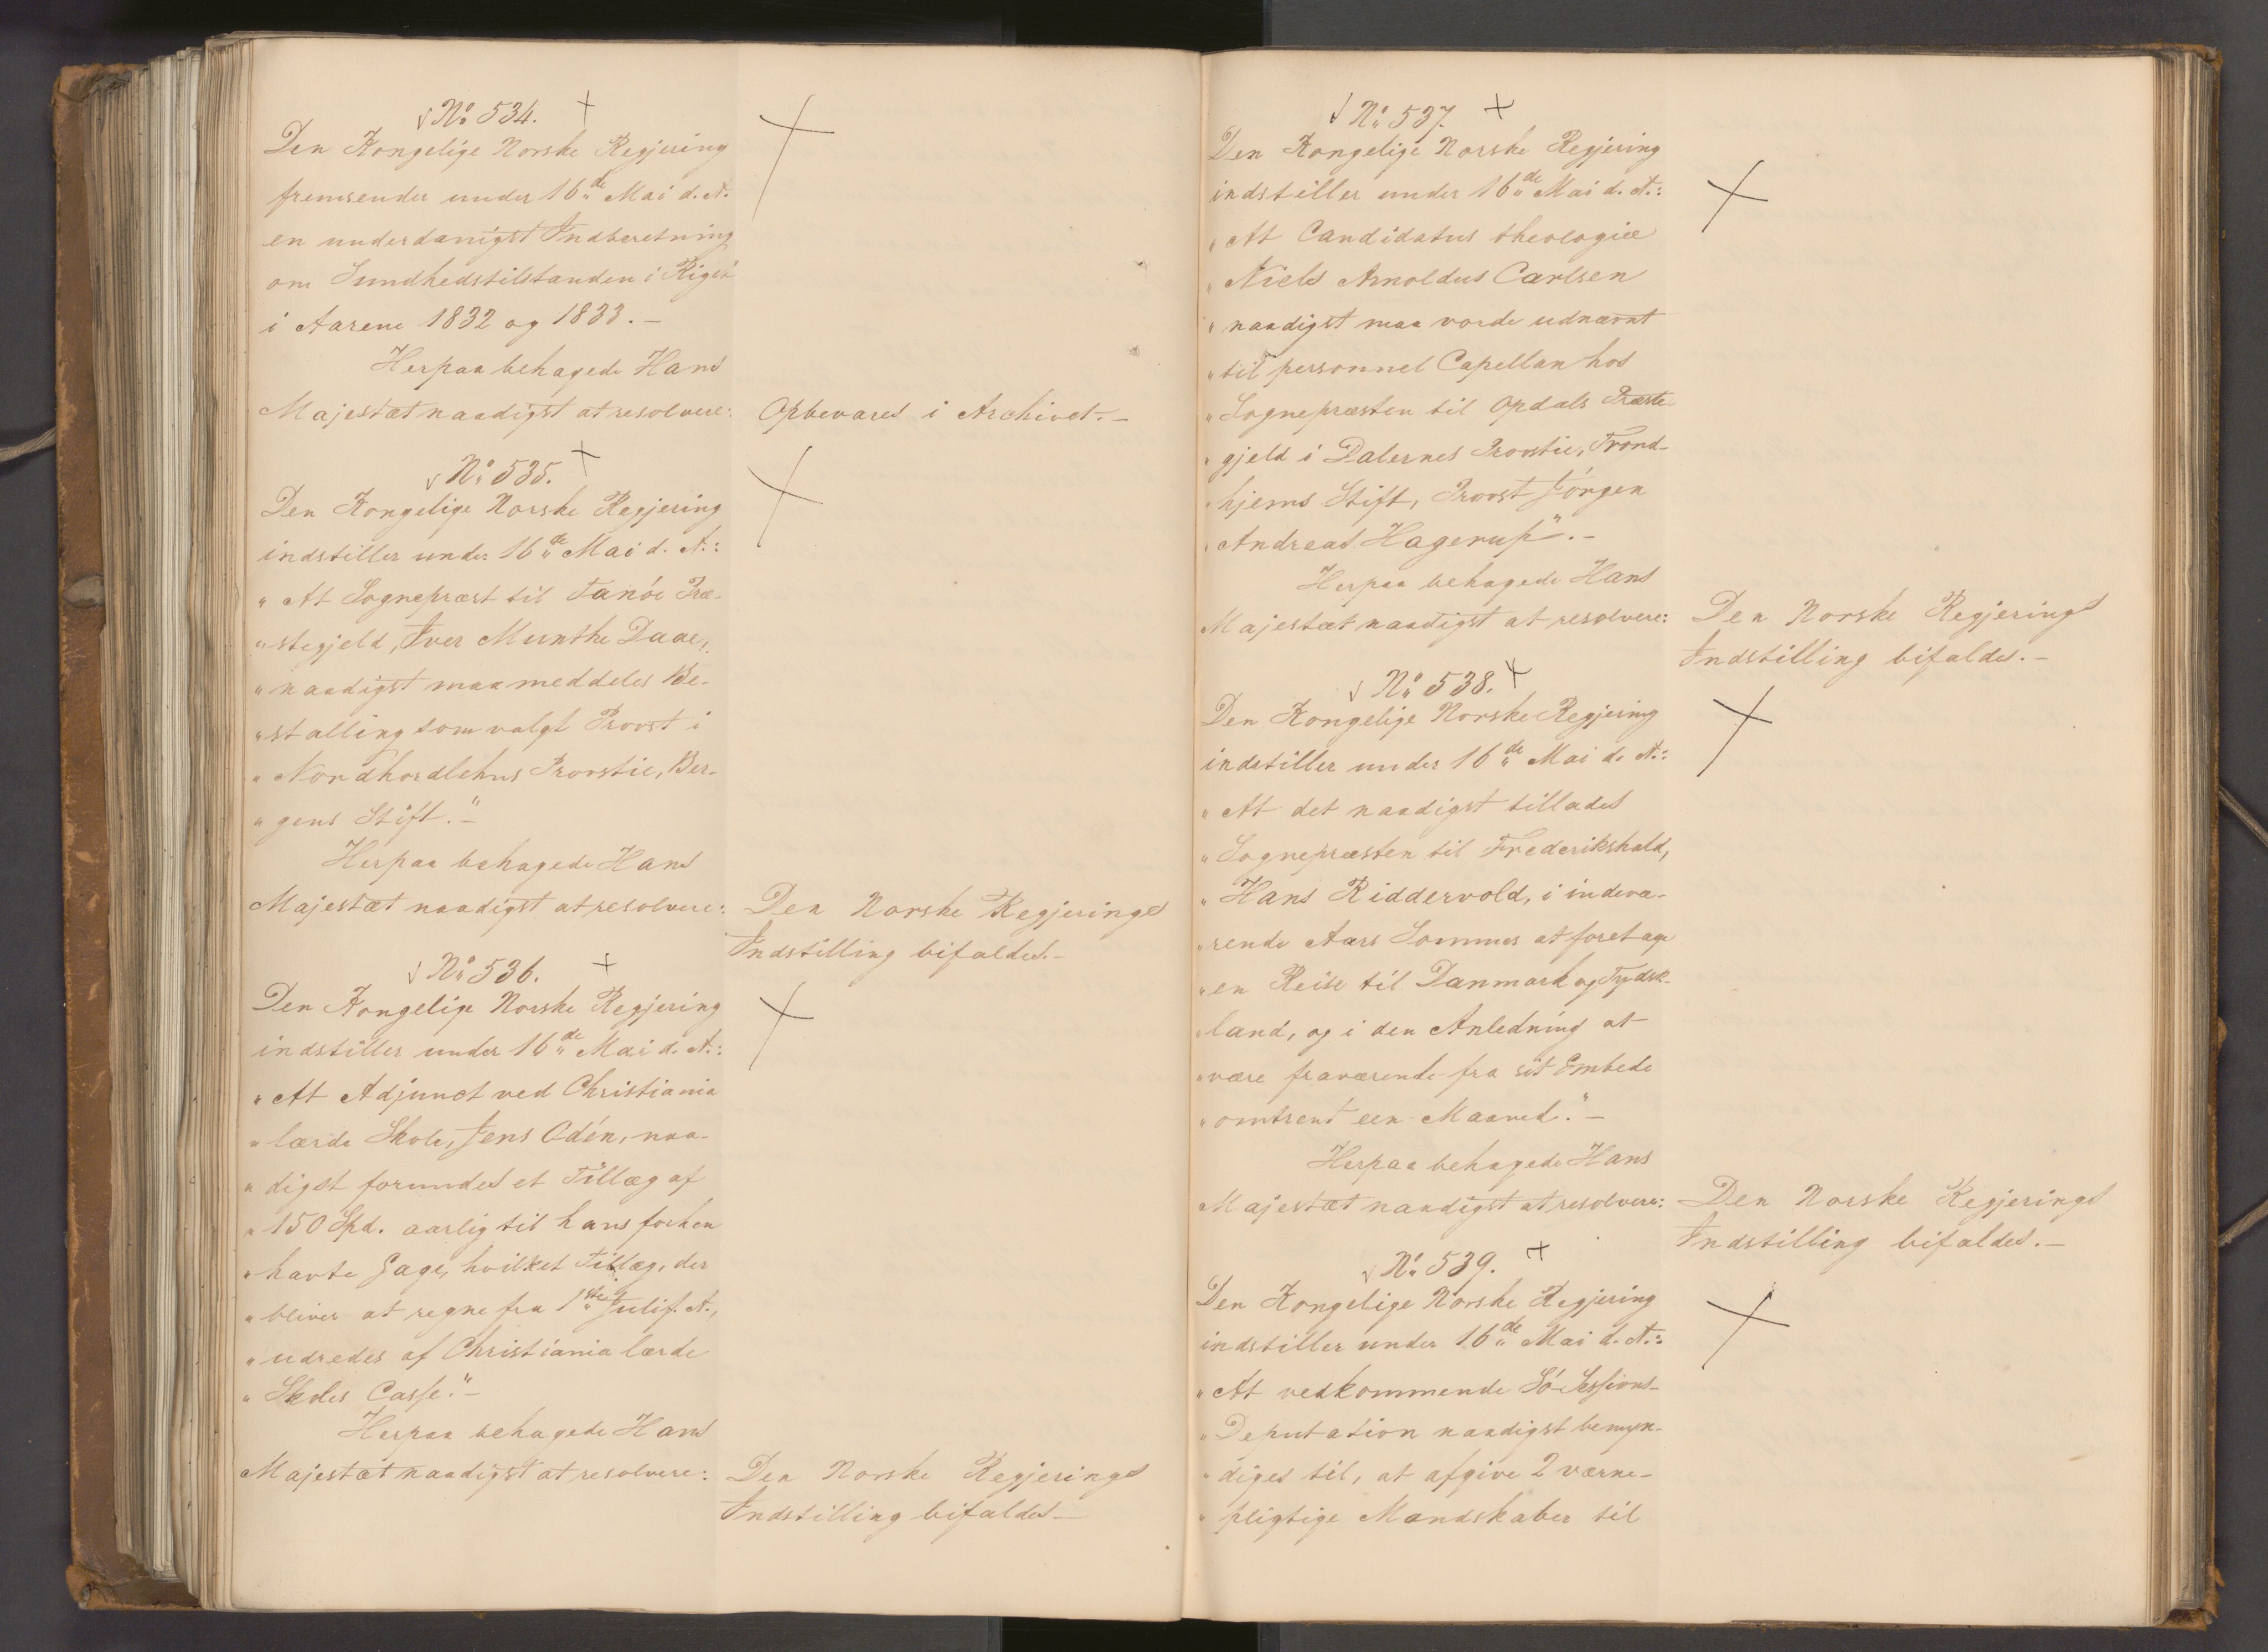 No 534.
Den Kongelige Norske Regjering
fremsender under 16de Mai d. A.
en underdanigst Indberetning
om Sundhedstilstanden i Riget
i Aarene 1832 og 1833.-
Herpaa behagede Hans
Majestæt naadigst at resolvere:
Opbevares i Archivet.-
No 535.
Den Kongelige Norske Regjering
indstiller under 16de Mai d. A.:
"At Sognepræst til Fanöe Præ-
"stegjeld, Iver Munthe Daae,
"naadigst maa meddeles Be-
"stalling som valgt Provst i
"Nordhordlehns Provstie, Ber-
"gens Stift."-
Herpaa behagede Hans
Majestæt naadigst at resolvere:
Den Norske Regjerings
Indstilling bifaldes.-
No 536.
Den Kongelige Norske Regjering
indstiller under 16de Mai d. A.:
"At Adjunct ved Christiania
"lærde Skole, Jens Odén, naa-
"digst forundes et Tillæg af
"150 Spd. aarlig til hans forhen
"havte Gage, hvilket Tillæg, der
"bliver at regne fra 1ste Juli f. A.,
"udredes af Christiania lærde
"Skoles Casse."-
Herpaa behagede Hans
Majestæt naadigst at resolvere:
Den Norske Regjerings
Indstilling bifaldes.-
No 537.
Den Kongelige Norske Regjering
indstiller under 16de Mai d. A.:
"At Candidatus theologiæ
"Niels Arnoldus Carlsen
"naadigst maa vorde udnævnt
"til personnel Capellan hos
"Sognepræsten til Opdals Præste-
"gjeld i Dalernes Provstie, Trond-
"hjems Stift, Provst Jörgen
"Andreas Hagerup".-
Herpaa behagede Hans
Majestæt naadigst at resolvere:
Den Norske Regjerings
Indstilling bifaldes.-
No 538.
Den Kongelige Norske Regjering
indstiller under 16de Mai d. A.:
"At det naadigst tillades
"Sognepræsten til Frederikshald,
"Hans Riddervold, i indevæ-
"rende Aars Sommer at foretage
"en Reise til Danmark og Tydsk-
"land, og i den Anledning at
"være fraværende fra sit Embede
"omtrent een Maaned."-
Herpaa behagede Hans
Majestæt naadigst at resolvere:
Den Norske Regjerings
Indstilling bifaldes.-
No 539.
Den Kongelige Norske Regjering
indstiller under 16de Mai d. A.:
"At vedkommende Sö-Sessions-
"Deputation naadigst bemyn-
"diges til, at afgive 2 værne-
"pligtige Mandskaber til